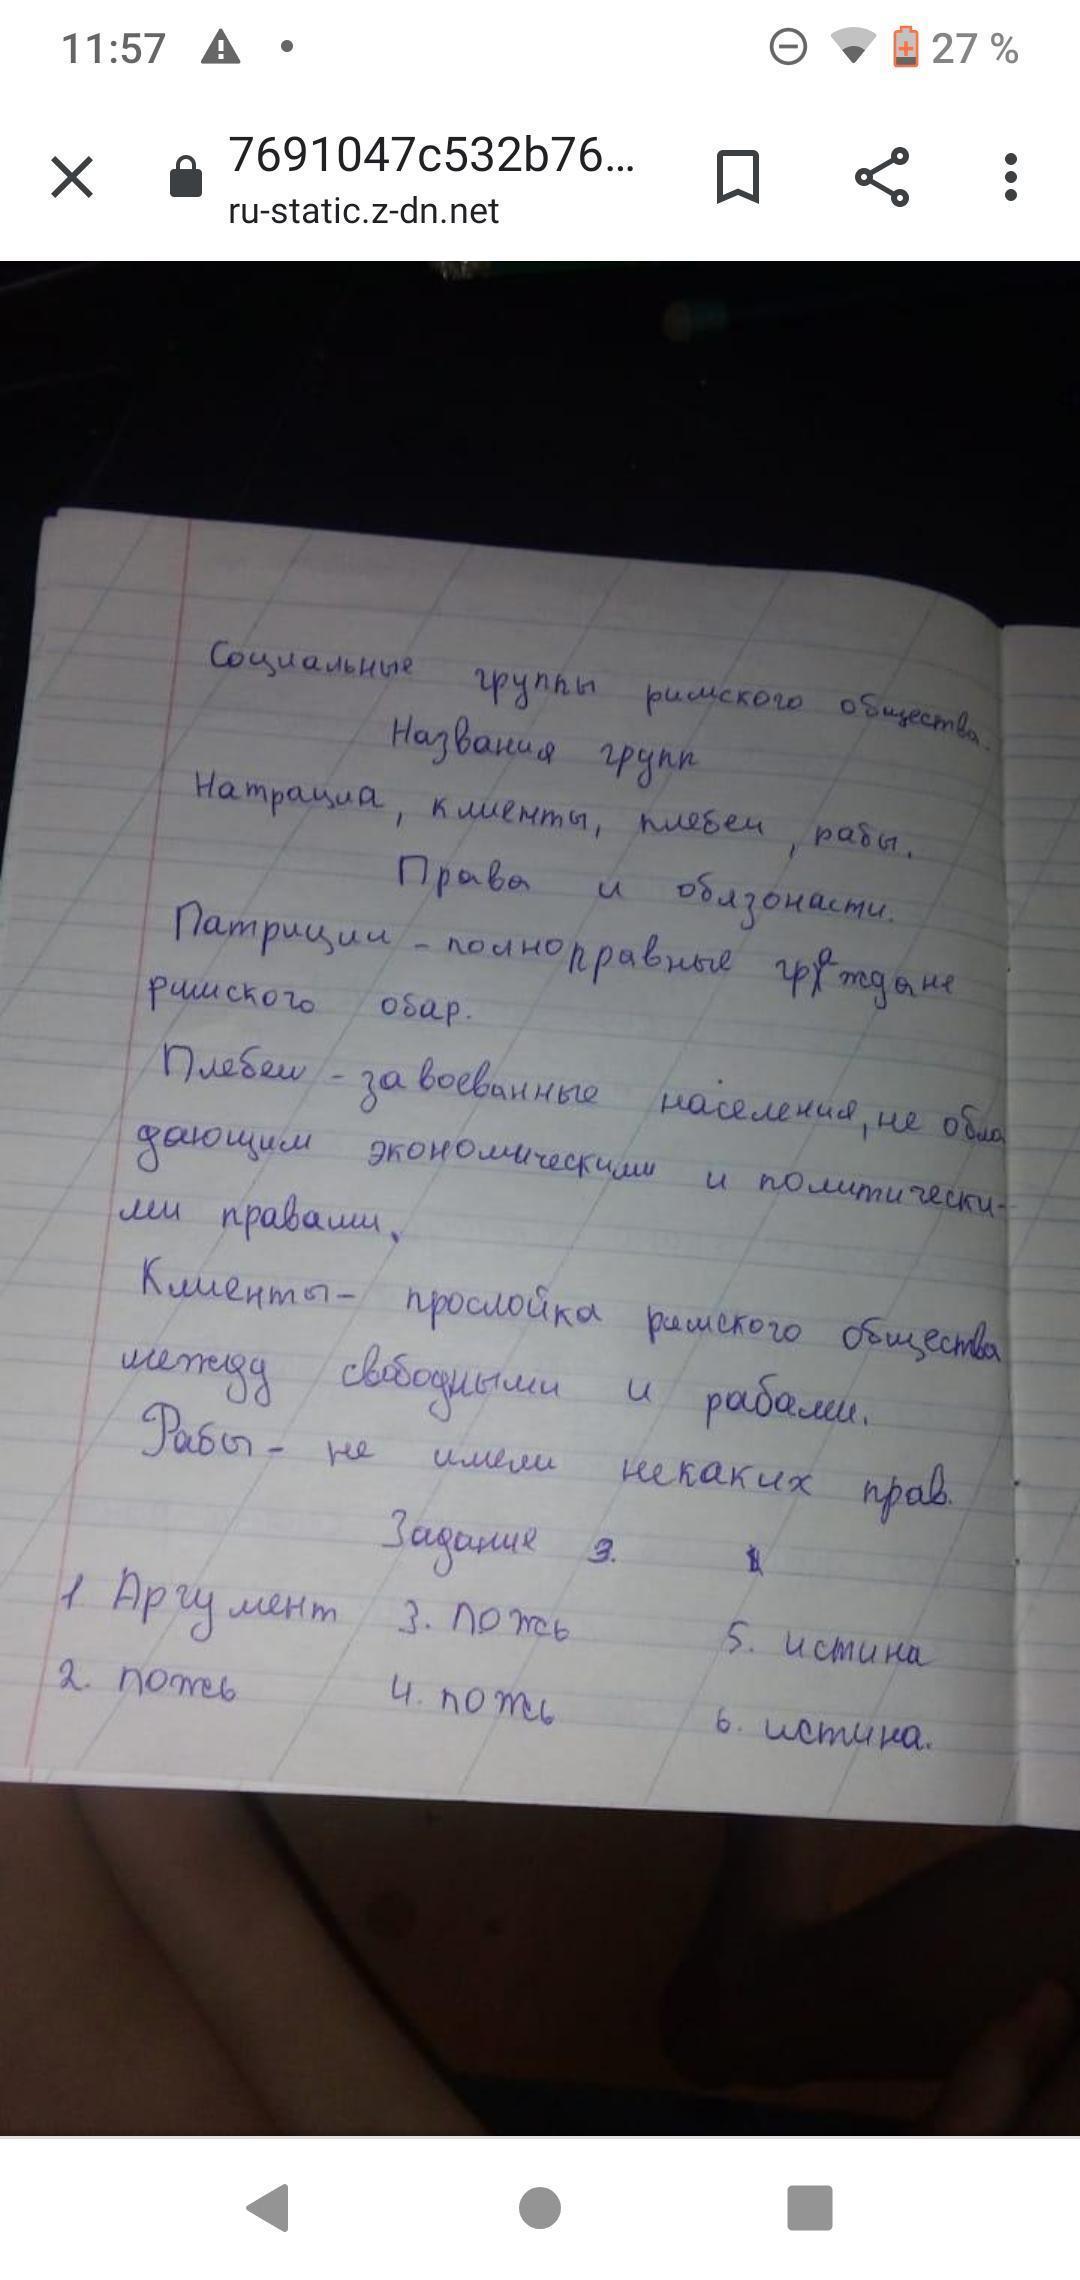 11:57
27 %
7691047c532b76...
ru-static.z-dn.net
Социальные группы римского общества.
Названия групп
Натрациа, клиенты, плебеи, рабы.
Права и обязонасти.
Патриции - полноправные граждане
римского обар.
Плебеи - завоеванные населения, не обла
дающим экономическими и политически-
ми правами.
Клиенты - прослойка римского общества
между свободными и рабами.
Рабы - не имели некаких прав.
Задание 3.
1. Аргумент 3. ложь 5. истина
2. ложь 4. ложь 6. истина.